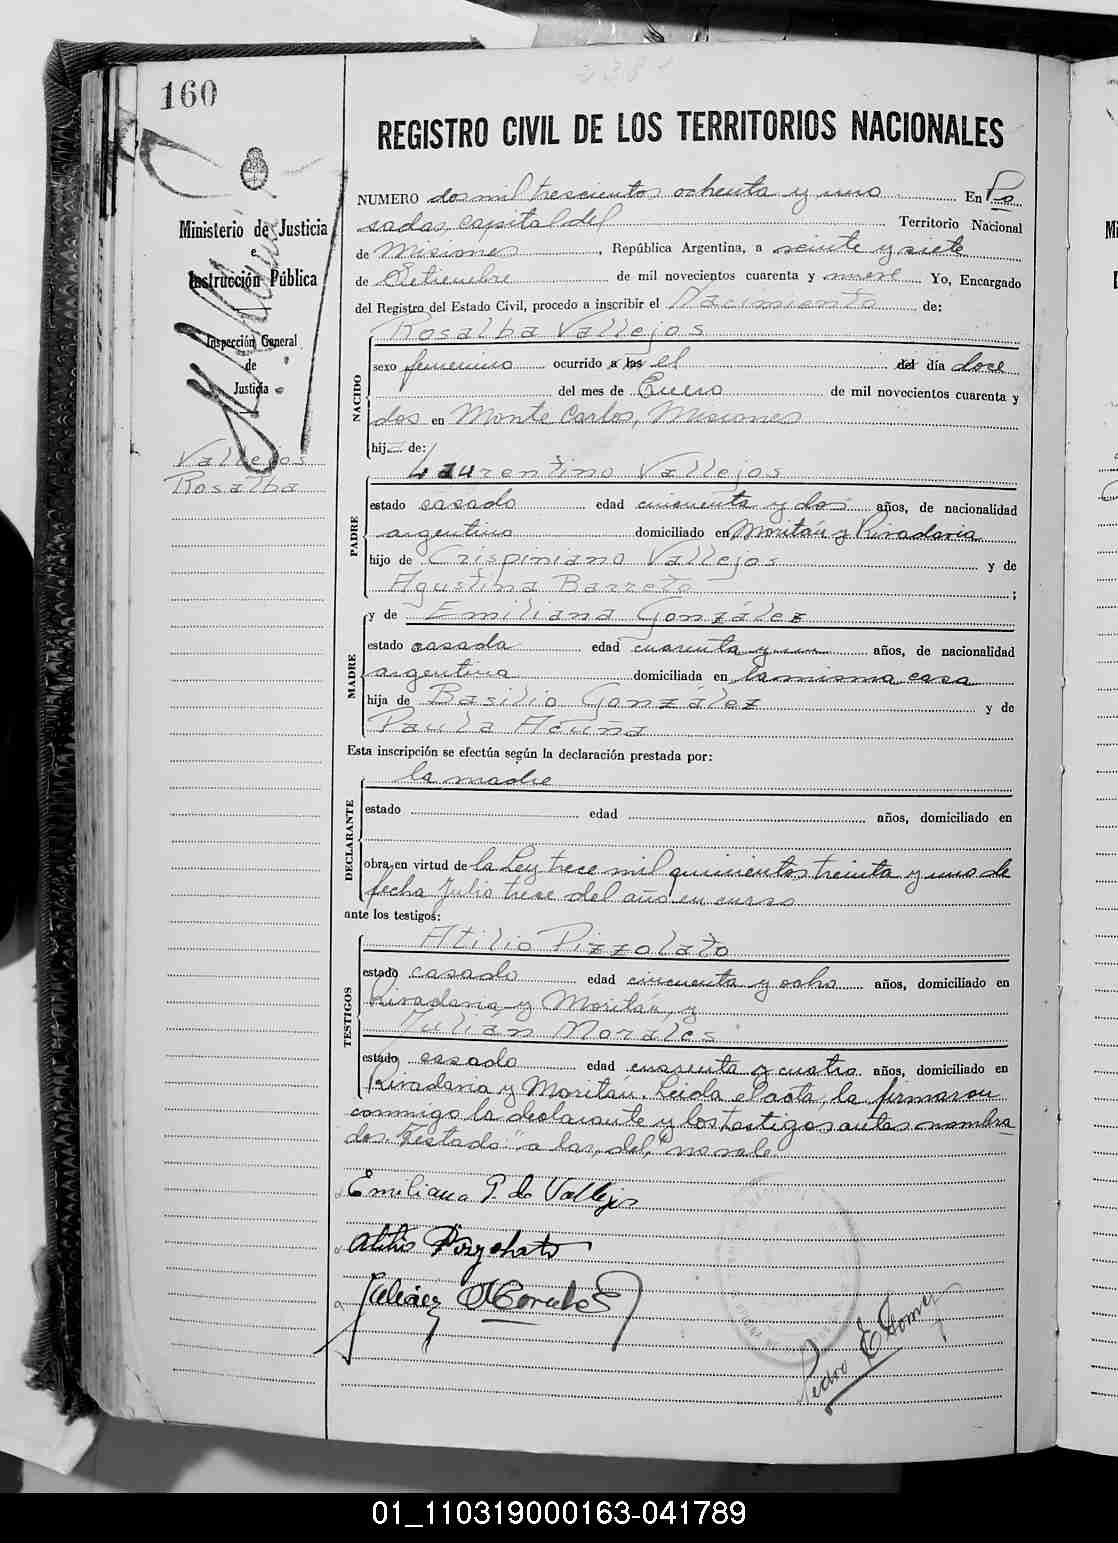 160
REGISTRO CIVIL DE LOS TERRITORIOS NACIONALES
Ministerio de Justicia
Instrucción Pública
Inspección General
de
Justicia
Vallejos
Rosalba
NUMERO dos mil trescientos ochenta y uno En Po
sadas, capital del Territorio Nacional
de Misiones, República Argentina, a veinte y siete
de Setiembre de mil novecientos cuarenta y nueve Yo, Encargado
del Registro del Estado Civil, procedo a inscribir el Nacimiento de:
Rosalba Vallejos
NACIDO
sexo femenino ocurrido a las el del día doce
del mes de Enero de mil novecientos cuarenta y
dos en Monte Carlos, Misiones
hij de:
Laurentino Vallejos
PADRE
estado casado edad cincuenta y dos años, de nacionalidad
argentino domiciliado en Moritán y Rivadavia
hijo de Crispiniano Vallejos y de
Agustina Barreto;
y de Emiliana González
MADRE
estado casada edad cuarenta y un años, de nacionalidad
argentina domiciliada en la misma casa
hija de Basilio González y de
Paula Acuña
Esta inscripción se efectúa según la declaración prestada por:
la madre
DECLARANTE
estado edad años, domiciliado en
obra en virtud de la Ley trece mil quinientos treinta y uno de
fecha Julio trece del año en curso
ante los testigos:
Atilio Pizzolato
TESTIGOS
estado casado edad cincuenta y ocho años, domiciliado en
Rivadavia y Moritán, y
Julián Morales
estado casado edad cuarenta y cuatro años, domiciliado en
Rivadavia y Moritán. Leida el acta, la firmaron
conmigo la declarante y los testigos antes nombra
dos. Testado "a las, del," no vale
Emiliana G. de Vallejo
Atilio Pizzolato
Julián Morales
Pedro E Gomez
01_110319000163-041789